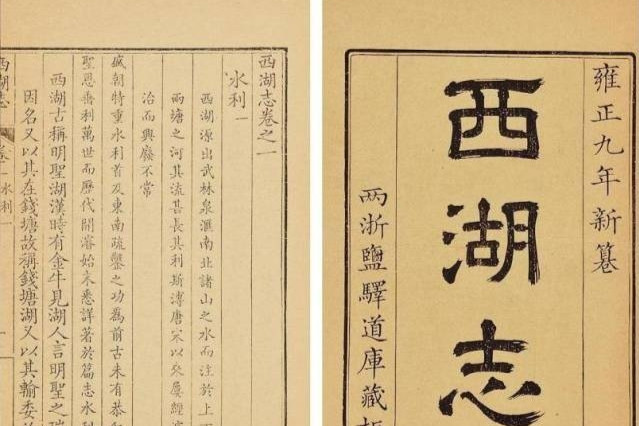 雍正九年新纂
西湖志
两浙鹽驛道庫藏板
西湖志卷之一
水利一
西湖源出武林泉滙南北諸山之水而注於上
兩塘之河其流甚長其利斯溥唐宋以來屢經
治而興廢不常
盛朝特重水利首及東南疏鑿之功爲前古未有恭
聖恩普利萬世而歷代開濬始末悉詳著於篇志水
西湖古稱明聖湖漢時有金牛見湖人言明聖之瑞
因名又以其在錢塘故稱錢塘湖又以其輸委
西湖志 卷一 水利一